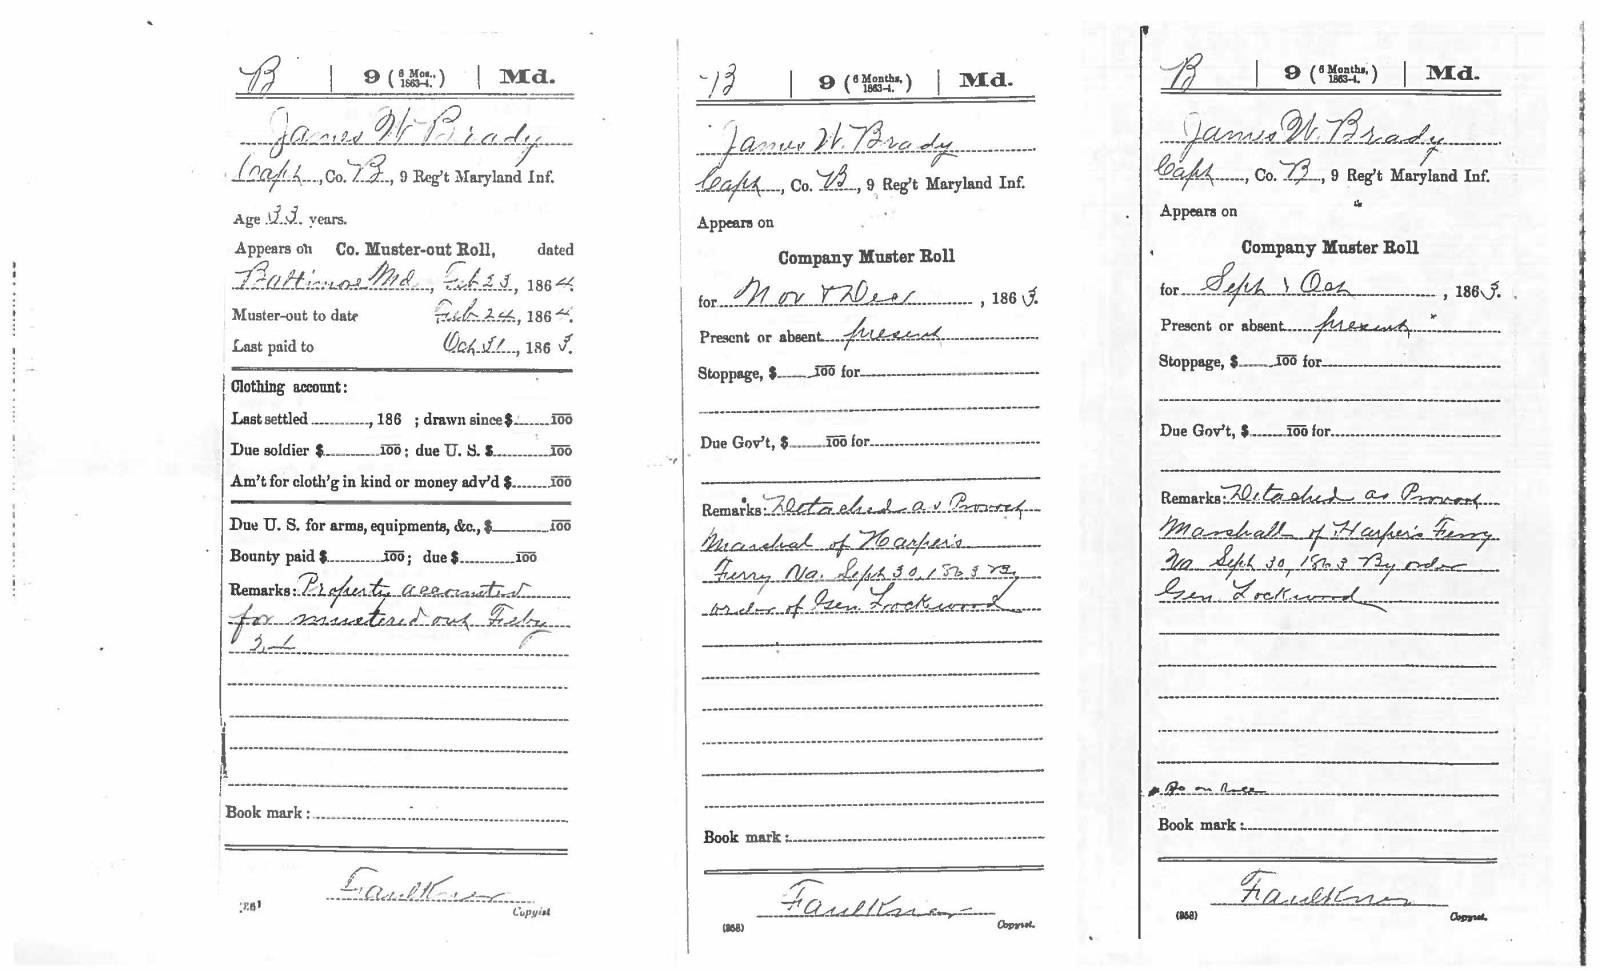 B | 9 (6 Mos., 1863-4.) | Md.
James W Brady
Capt, Co. B, 9 Reg't Maryland Inf.
Age 33 years.
Appears on Co. Muster-out Roll, dated
Baltimore Md, Feb 23, 1864.
Muster-out to date Feb 24, 1864.
Last paid to Oct 31, 1863.
Clothing account:
Last settled, 186 ; drawn since $ 100
Due soldier $ 100; due U. S. $ 100
Am't for cloth'g in kind or money adv'd $ 100
Due U. S. for arms, equipments, &c., $ 100
Bounty paid $ 100; due $ 100
Remarks: Property accounted
for mustered out Feby
Book mark:
Faulkner
Copyist
B | 9 (6 Months, 1863-4.) | Md.
James W. Brady
Capt, Co. B, 9 Reg't Maryland Inf.
Appears on
Company Muster Roll
for Nov & Dec, 1863.
Present or absent present
Stoppage, $ 100 for
Due Gov't, $ 100 for
Remarks: Detached as Provost
Marshal of Harper's
Ferry Va. Sept 30, 1863 By
order of Gen Lockwood
Book mark:
Faulkner
(358) Copyist.
B | 9 (6 Months, 1863-4.) | Md.
James W. Brady
Capt, Co. B, 9 Reg't Maryland Inf.
Appears on
Company Muster Roll
for Sept & Oct, 1863.
Present or absent present
Stoppage, $ 100 for
Due Gov't, $ 100 for
Remarks: Detached as Provost
Marshall of Harper's Ferry
Va. Sept 30, 1863 By order
Gen. Lockwood
Book mark:
Faulkner
(358) Copyist.